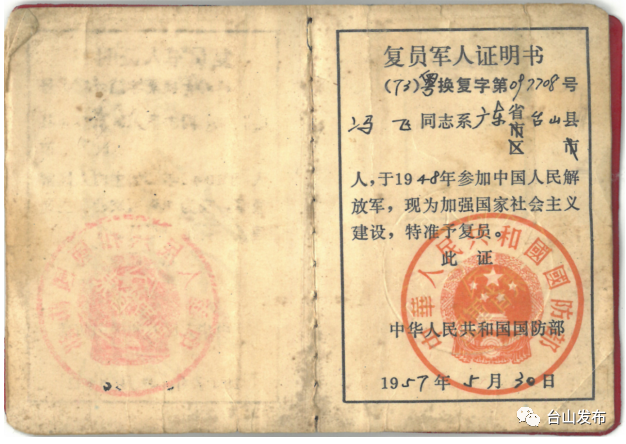 复员军人证明书
(73)粤换复字第097708号
冯飞同志系广东省市区台山县市
人，于1948年参加中国人民解
放军，现为加强国家社会主义
建设，特准予复员。
此证
中华人民共和国国防部
1957年5月30日
中華人民共和國國防部
台山发布